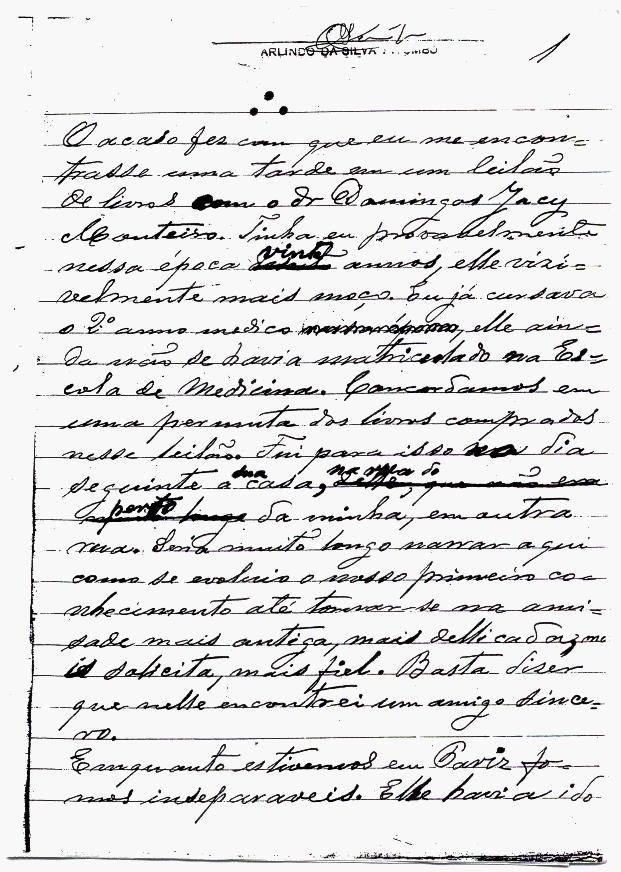 1
ARLINDO DA SILVA
O acaso fez com que eu me encon=
trasse uma tarde em um leilão
de livros com o dr Domingos Jacy
Monteiro. Tinha eu provavelmente
nessa época vinte annos, elle vizi=
velmente mais moço. Eu já cursava
o 2º anno medico, elle ain=
da não se havia matriculado na Es=
cola de Medicina. Concordamos em
uma permuta dos livros comprados
nesse leilão. Fui para isso no dia
seguinte a sua casa, na rua do
perto da minha, em outra
rua. Seria muito longo narrar aqui
como se evoluio o nosso primeiro co=
nhecimento até tornar-se na ami=
sade mais antiga, mais dellicada, ma
is solicita, mais fiel. Basta dizer
que nelle encontrei um amigo since=
ro.
Emquanto estivemos em Pariz fo=
mos inseparaveis. Elle havia ido